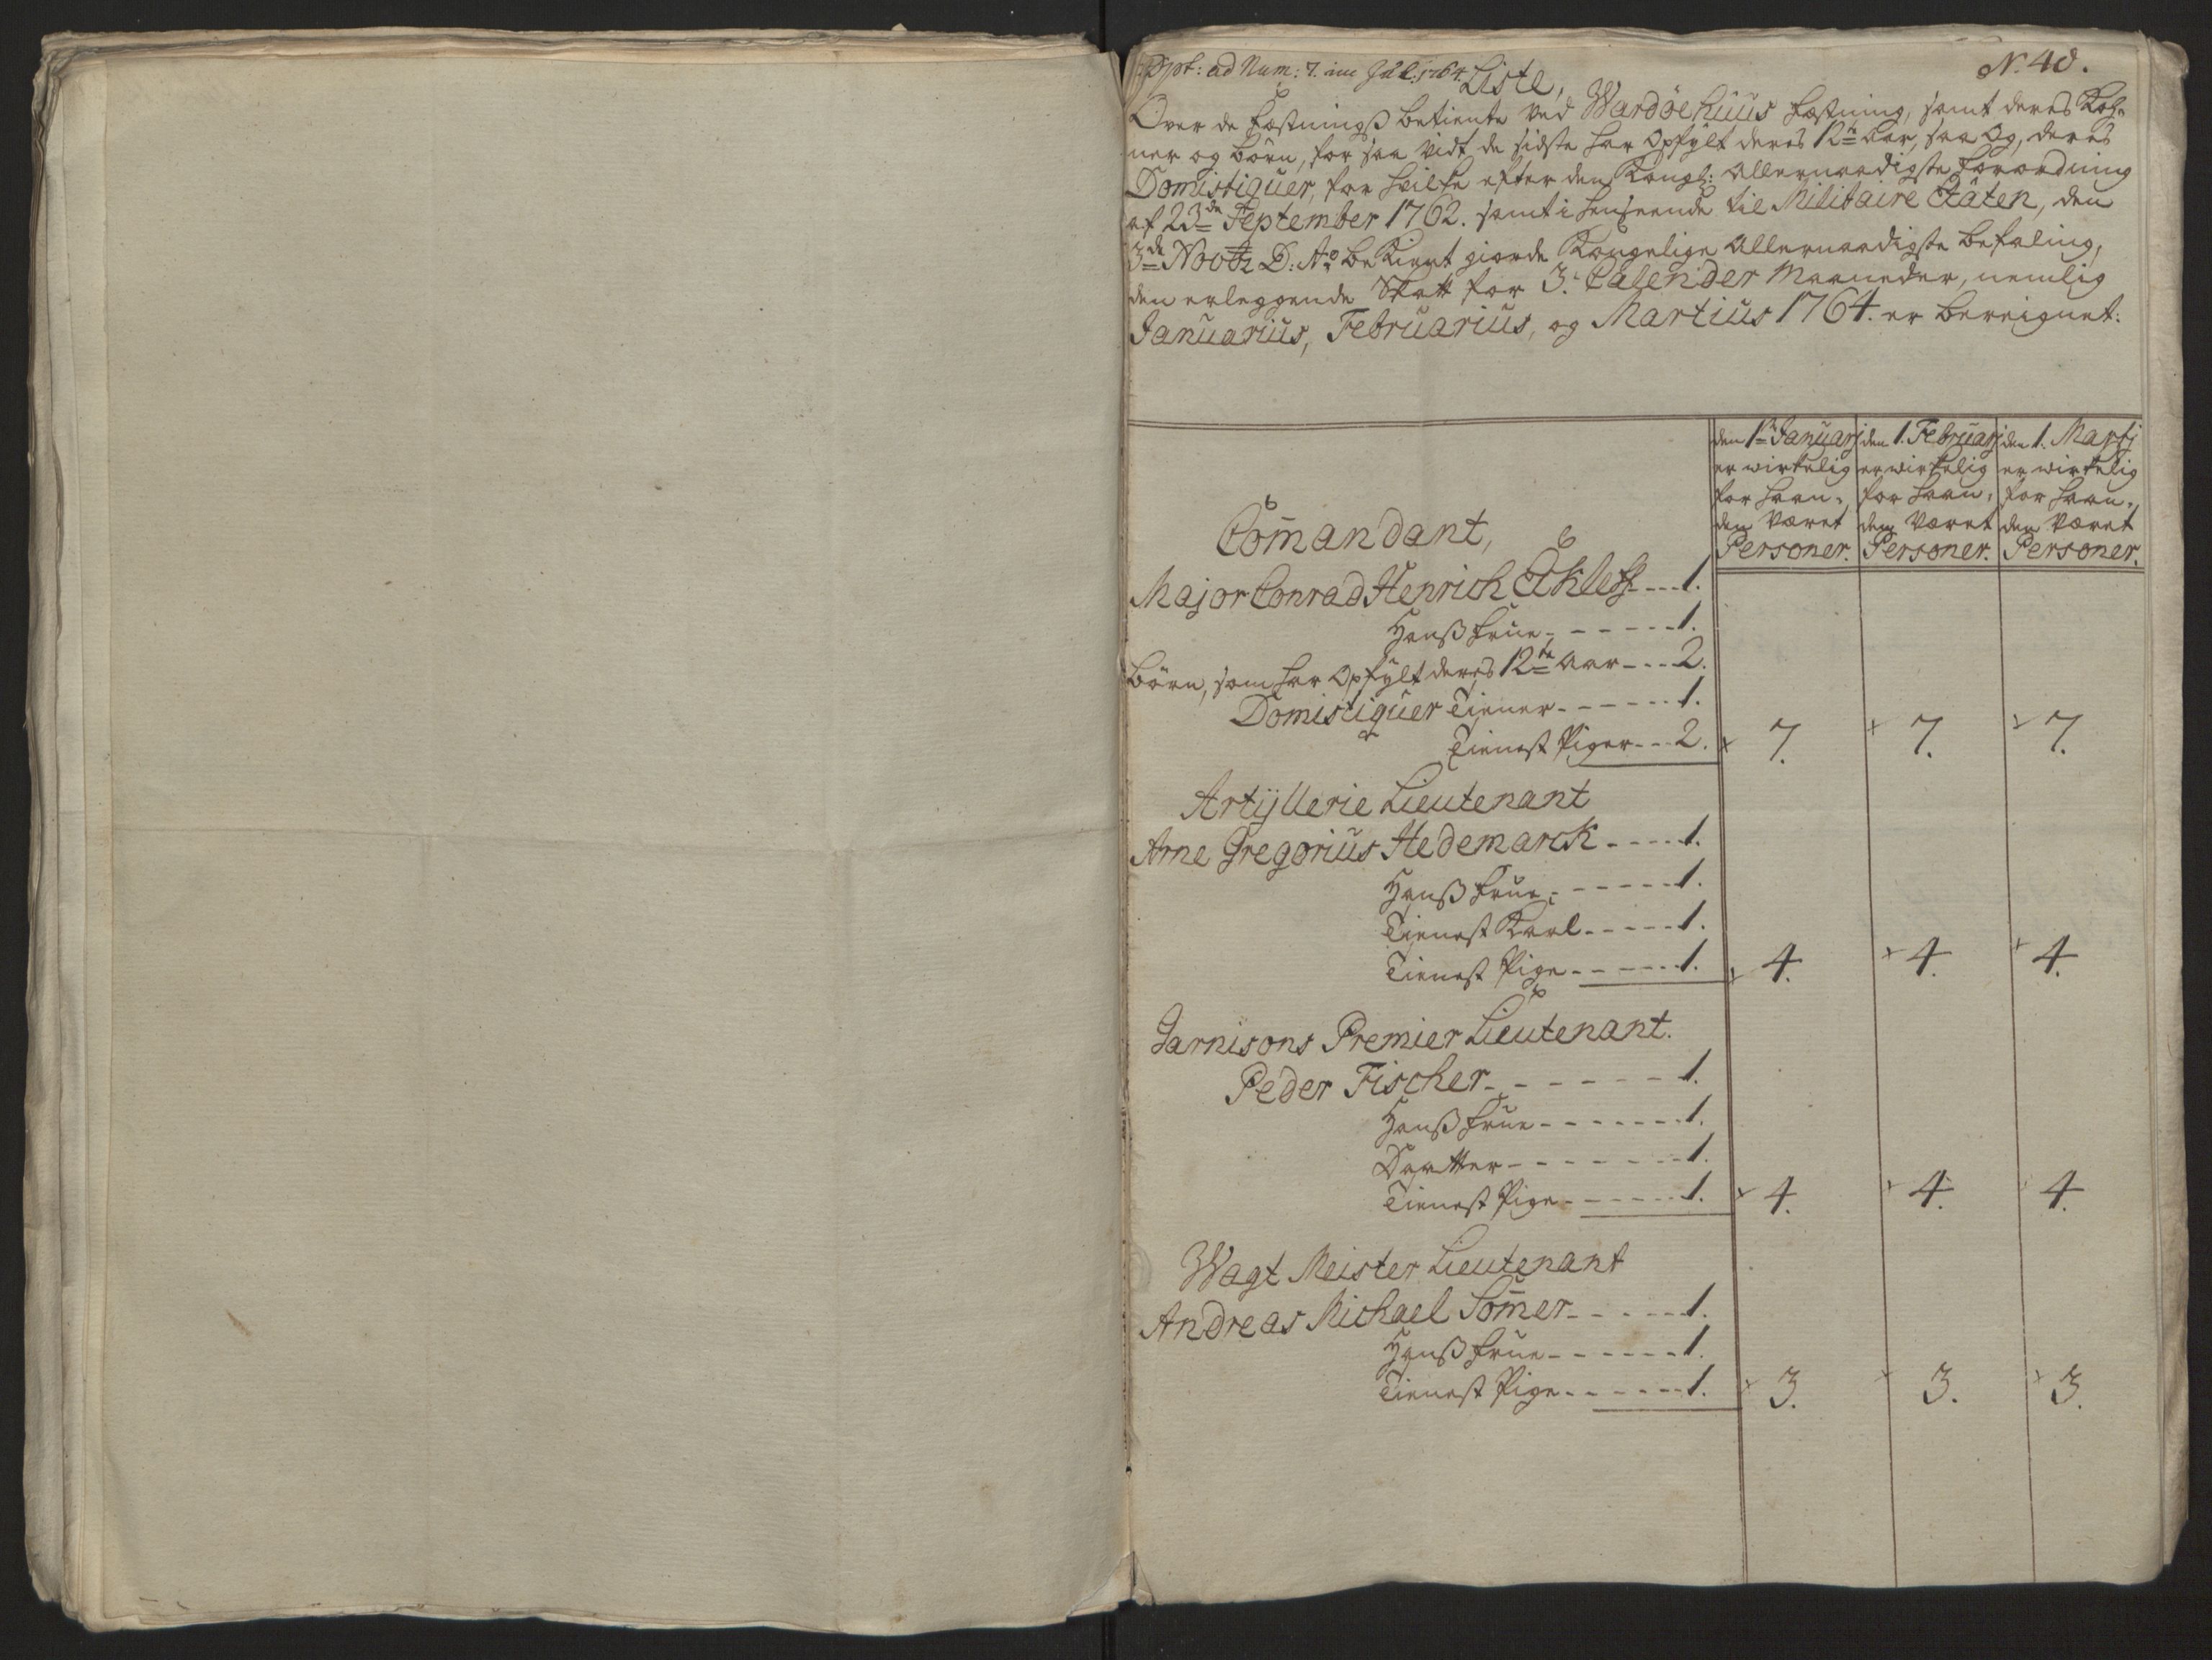 ad Num: 7. 1764. Liste,
N. 40.
Over de Fæstningsß betiente ved Wardöehuus Fæstning, samt deres Koh-
ner og börn, for saa vidt de sidste har opfylt deres 12te aar, saa og, deres
Domistiquer, for hvilke efter den Kongl: allernaadigste forordning
af 23de September 1762. samt i henseende til Militaire Etaten, den
3de Novbr D: Ao bekient giorde Kongelige allernaadigste befaling,
den erleggende Skatt for 3. Calender Maaneder, nemlig
Januarius, Februarius, og Martius 1764. er bereignet:
den 1te Januarj den 1. Februarj den 1. Martj
er wirkelig er wirkelig er wirkelig
for haan- for haan- for haan-
den været den været den været
Personer. Personer. Personer.
Com̄andant,
Major Conrad Henrich Ekleff - - - 1.
Hanß frue - - - - - 1.
börn, som har opfylt deres 12te aar - - - 2.
Domistiquer Tiener - - - - - - 1.
Tienest Piger - - - 2. 7. 7. 7.
Artijllerie Lieutenant
Arne Gregorius Hedemarck - - - - 1.
Hanß frue - - - - - 1.
Tienest Karl - - - - - 1.
Tienest Pige - - - - - 1. 4. 4. 4.
Garnisons Premier Lieutenant.
Peder Fischer - - - - - - 1.
Hanß frue - - - - - - 1.
Daatter - - - - - - 1.
Tienest Pige - - - - - 1. 4. 4. 4.
Wagt Meister Lieutenant
Andreas Michael Som̄er - - - - 1.
Hanß frue - - - - - - 1.
Tienest Pige - - - - - - 1. 3. 3. 3.